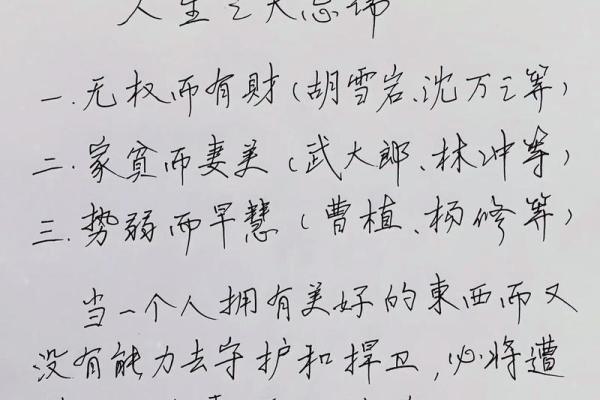 人生三大忌讳
一.无权而有財(胡雪岩、沈万三等)
二.家貧而妻美(武大郎、林冲等)
三.势弱而早慧(曹植、杨修等)
当一个人拥有美好的東西而又
没有能力去守护和捍卫,必将遭